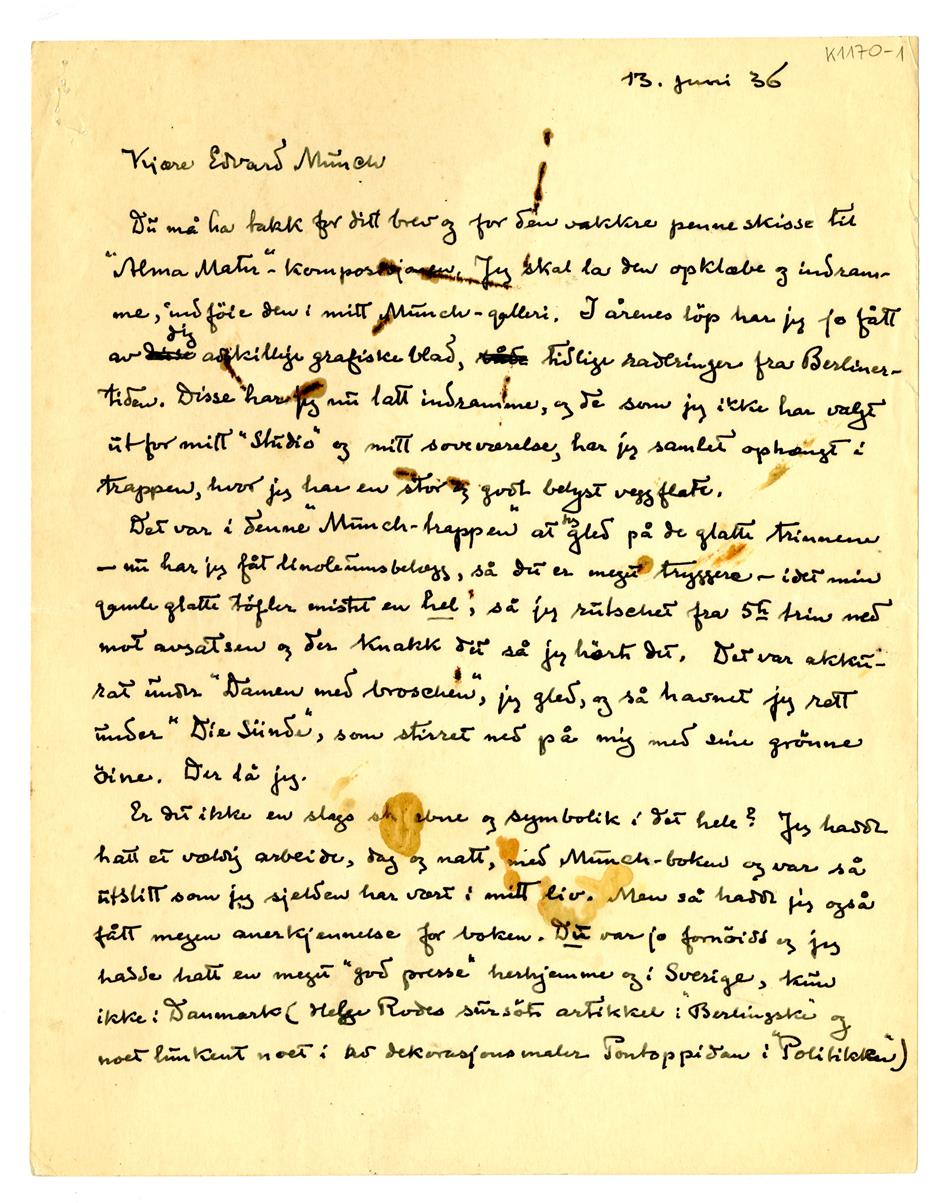 K1170-1
13. juni 36
Kjære Edvard Munch
Du må ha takk for ditt brev og for den vakkre penneskisse til
"Alma Mater"-komposisjonen. Jeg skal la den opklæbe og indram-
me, indföie den i mitt Munch-galleri. I årenes löp har jeg jo fått
av dig adskillige grafiske blad, tidlige raderinger fra Berliner-
tiden. Disse har jeg nu latt indramme, og de som jeg ikke har valgt
ut for mitt "Studio" og mitt soveværelse, har jeg samlet ophængt i
trappen, hvor jeg har en stor og godt belyst veggflate.
Det var i denne "Munch-trappen" at jeg gled på de glatte trinnene
— nu har jeg fåt linoleumsbelægg, så det er meget tryggere — idet min
gamle glatte töfler mistet en hel, så jeg rutschet fra 5te trin ned
mot avsatsen og der knakk det så jeg hørte det. Det var akku-
rat under "Damen med broschen", jeg gled, og så havnet jeg rett
under "Die Sünde", som stirret ned på mig med sine grönne
öine. Der lå jeg.
Er det ikke en slags skjebne og symbolik i det hele? Jeg hadde
hatt et vældig arbeide, dag og natt, med Munch-boken og var så
utslitt som jeg sjelden har vært i mitt liv. Men så hadde jeg også
fått megen anerkjennelse for boken. Du var jo fornöid og jeg
hadde hatt en meget "god presse" herhjemme og i Sverige, kun
ikke i Danmark (Helge Rodes sursöte artikkel i "Berlingske" og
noet lunkent noet i av dekorasjonsmaler Pontoppidan i "Politikken")